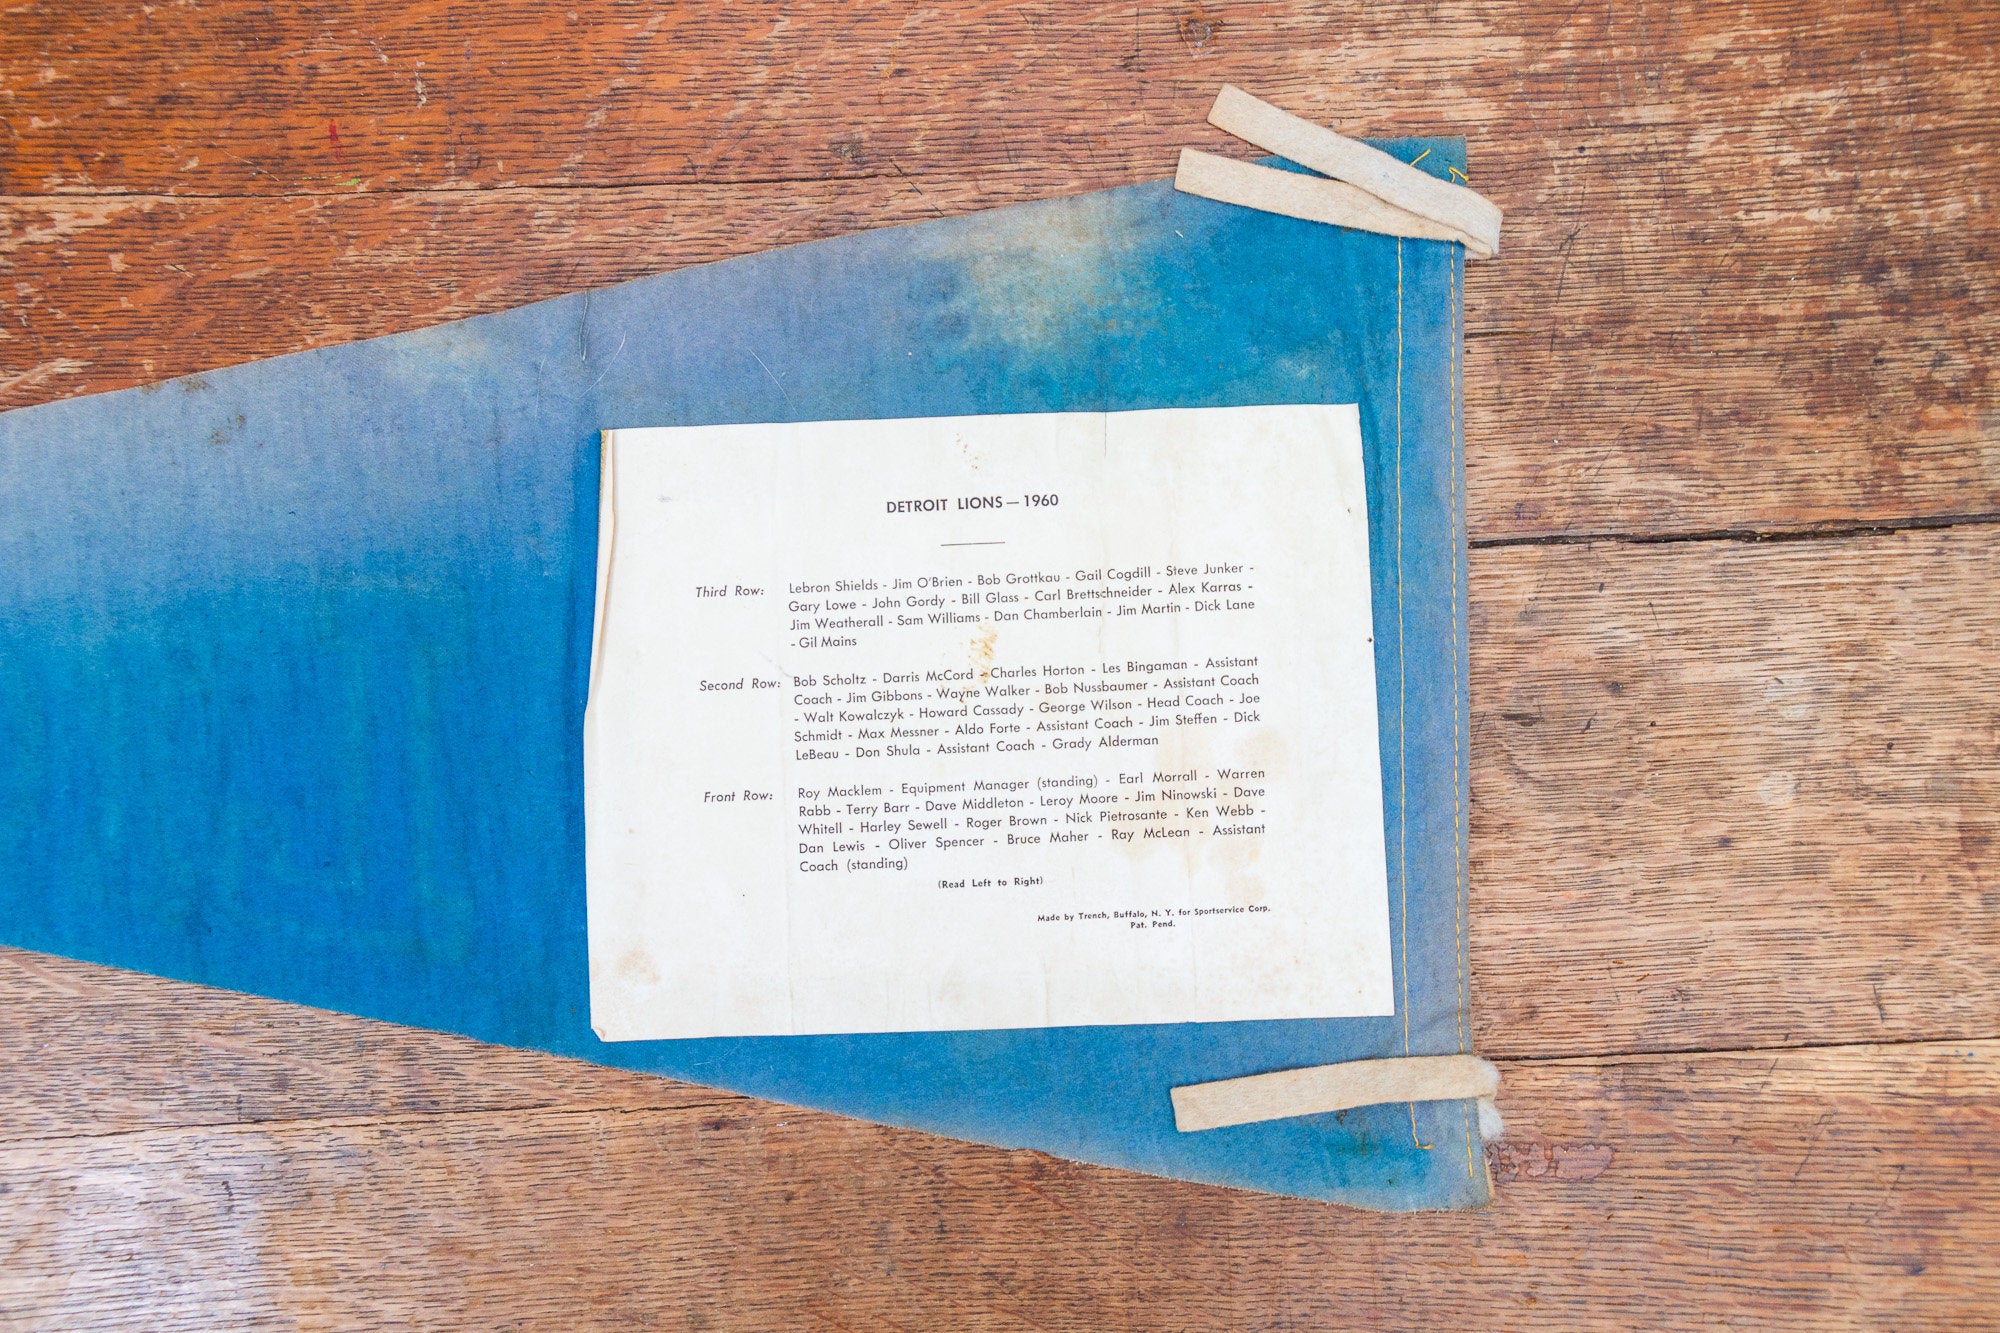 DETROIT LIONS — 1960
Third Row: Lebron Shields - Jim O'Brien - Bob Grottkau - Gail Cogdill - Steve Junker -
Gary Lowe - John Gordy - Bill Glass - Carl Brettschneider - Alex Karras -
Jim Weatherall - Sam Williams - Dan Chamberlain - Jim Martin - Dick Lane
- Gil Mains
Second Row: Bob Scholtz - Darris McCord - Charles Horton - Les Bingaman - Assistant
Coach - Jim Gibbons - Wayne Walker - Bob Nussbaumer - Assistant Coach
- Walt Kowalczyk - Howard Cassady - George Wilson - Head Coach - Joe
Schmidt - Max Messner - Aldo Forte - Assistant Coach - Jim Steffen - Dick
LeBeau - Don Shula - Assistant Coach - Grady Alderman
Front Row: Roy Macklem - Equipment Manager (standing) - Earl Morrall - Warren
Rabb - Terry Barr - Dave Middleton - Leroy Moore - Jim Ninowski - Dave
Whitell - Harley Sewell - Roger Brown - Nick Pietrosante - Ken Webb -
Dan Lewis - Oliver Spencer - Bruce Maher - Ray McLean - Assistant
Coach (standing)
(Read Left to Right)
Made by Trench, Buffalo, N. Y. for Sportservice Corp.
Pat. Pend.